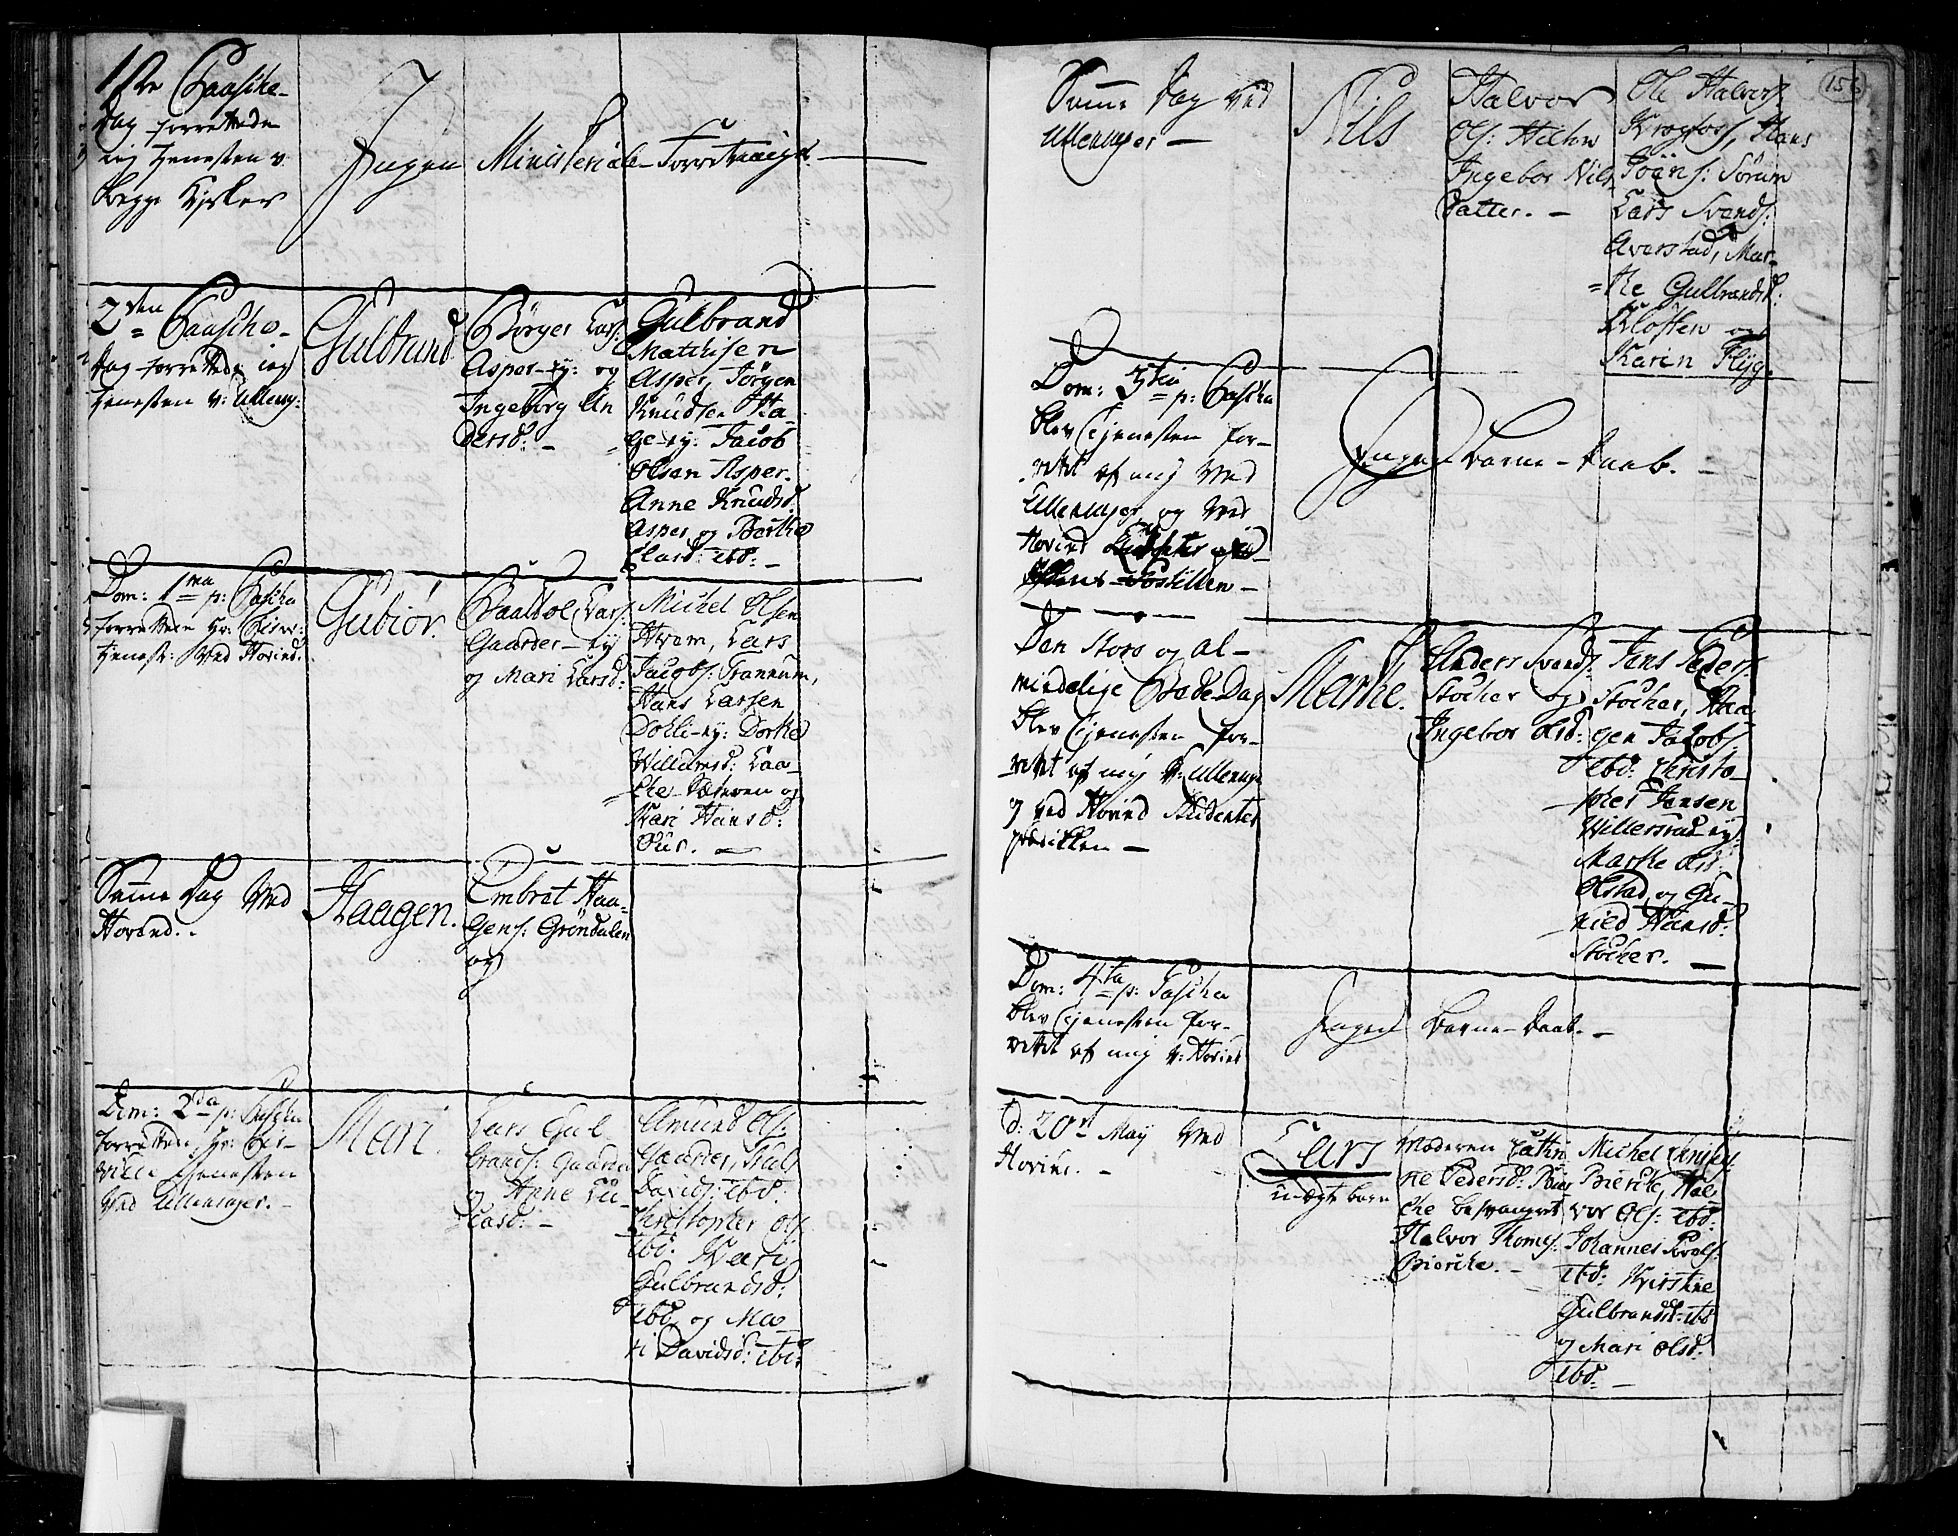 1ste Paasche-
Dag forrettede
ieg tjenesten v:
begge Kirker
Ingen Ministeriale Forretninger.
2den Paasche-
dag forrettede ieg
tjenesten v: Ullens:
Gulbrand
Børger Lars:
Asper-ey: og
Ingeborg An
dersd: -
Gulbrand
Mathisen
Asper, Jørgen
Knudsen Ha-
ge-ey: Jacob
Olsen Asper.
Anne Knudsd:
Asper og Berthe
Olasd: ibd: -
Dom: 1ma p: Pascha
forrettede Hr:
tjenest: ved Hovind.
Gubiør.
Paal Lars:
Gaarder-ey
og Mari Larsd:
Michel Olsen
Hvam, Lars
Jacobs: Trannum,
Hans Larsen
Dohli-ey: Dorthe
Willumsd: Laa-
che og
Kari Hansd:
Samme Dag ved
Hovind.
Haagen.
Embret Haa-
gens: Grøndalen
og
Dom: 2da p: Pascha
forrettede Hr:
tjenesten
ved Ullensager. -
Mari.
Lars Gul
brands: Gaarder
og Anne
Amund Ols:
Gaarder, Truls
Davids: ibd:
Christopher Ols:
ibd: Kari
Gulbrandsd:
ibd: og Ma-
ri Davidsd: ibd:
156
Samme Dag ved
Ullensager -
Nils
Halvor
Ols:
Ingebor Nils
datter. -
Ole Halvors:
Krogfoss, Hans
Jøans: Sørum
Lars Svends:
Averstad, Mar-
the Gulbrandsd:
Kløften og
Karin Flyg.
Dom: 3tia p: Pascha
blev tjenesten for-
rettet af mig ved
Ullensager og ved
Hovind
Postillen -
Ingen Barne-daab. -
Den store og al-
mindelige Bededag
blev tjenesten for-
rettet af mig v: Ullensag:
og ved Hovind Studenter
postillen -
Marthe.
Anders Svends:
Stocher og
Ingebor Olsd:
Jens Peders:
Stocher, Haa-
gen Jacobs:
ibd: Christo-
pher Jensen
Willerstad-ey:
Marthe Olsd:
Olstad, og Gu-
nild Hansd:
Stocher. -
Dom: 4ta p: Pascha
blev tjenesten for-
rettet af mig v: Hovind
Ingen Barne-daab. -
d: 20st Maij ved
Hovind. -
Lars
uægte barn
Moderen Cathri
ne Pedersd: Bier
che besvangret
Halvor Thoms:
Bierche. -
Michel
Bierche, Hal
vor Ols: ibd:
Johannes
ibd: Kirstine
Gulbrandsd: ibd
og Mari Olsd:
ibd: -